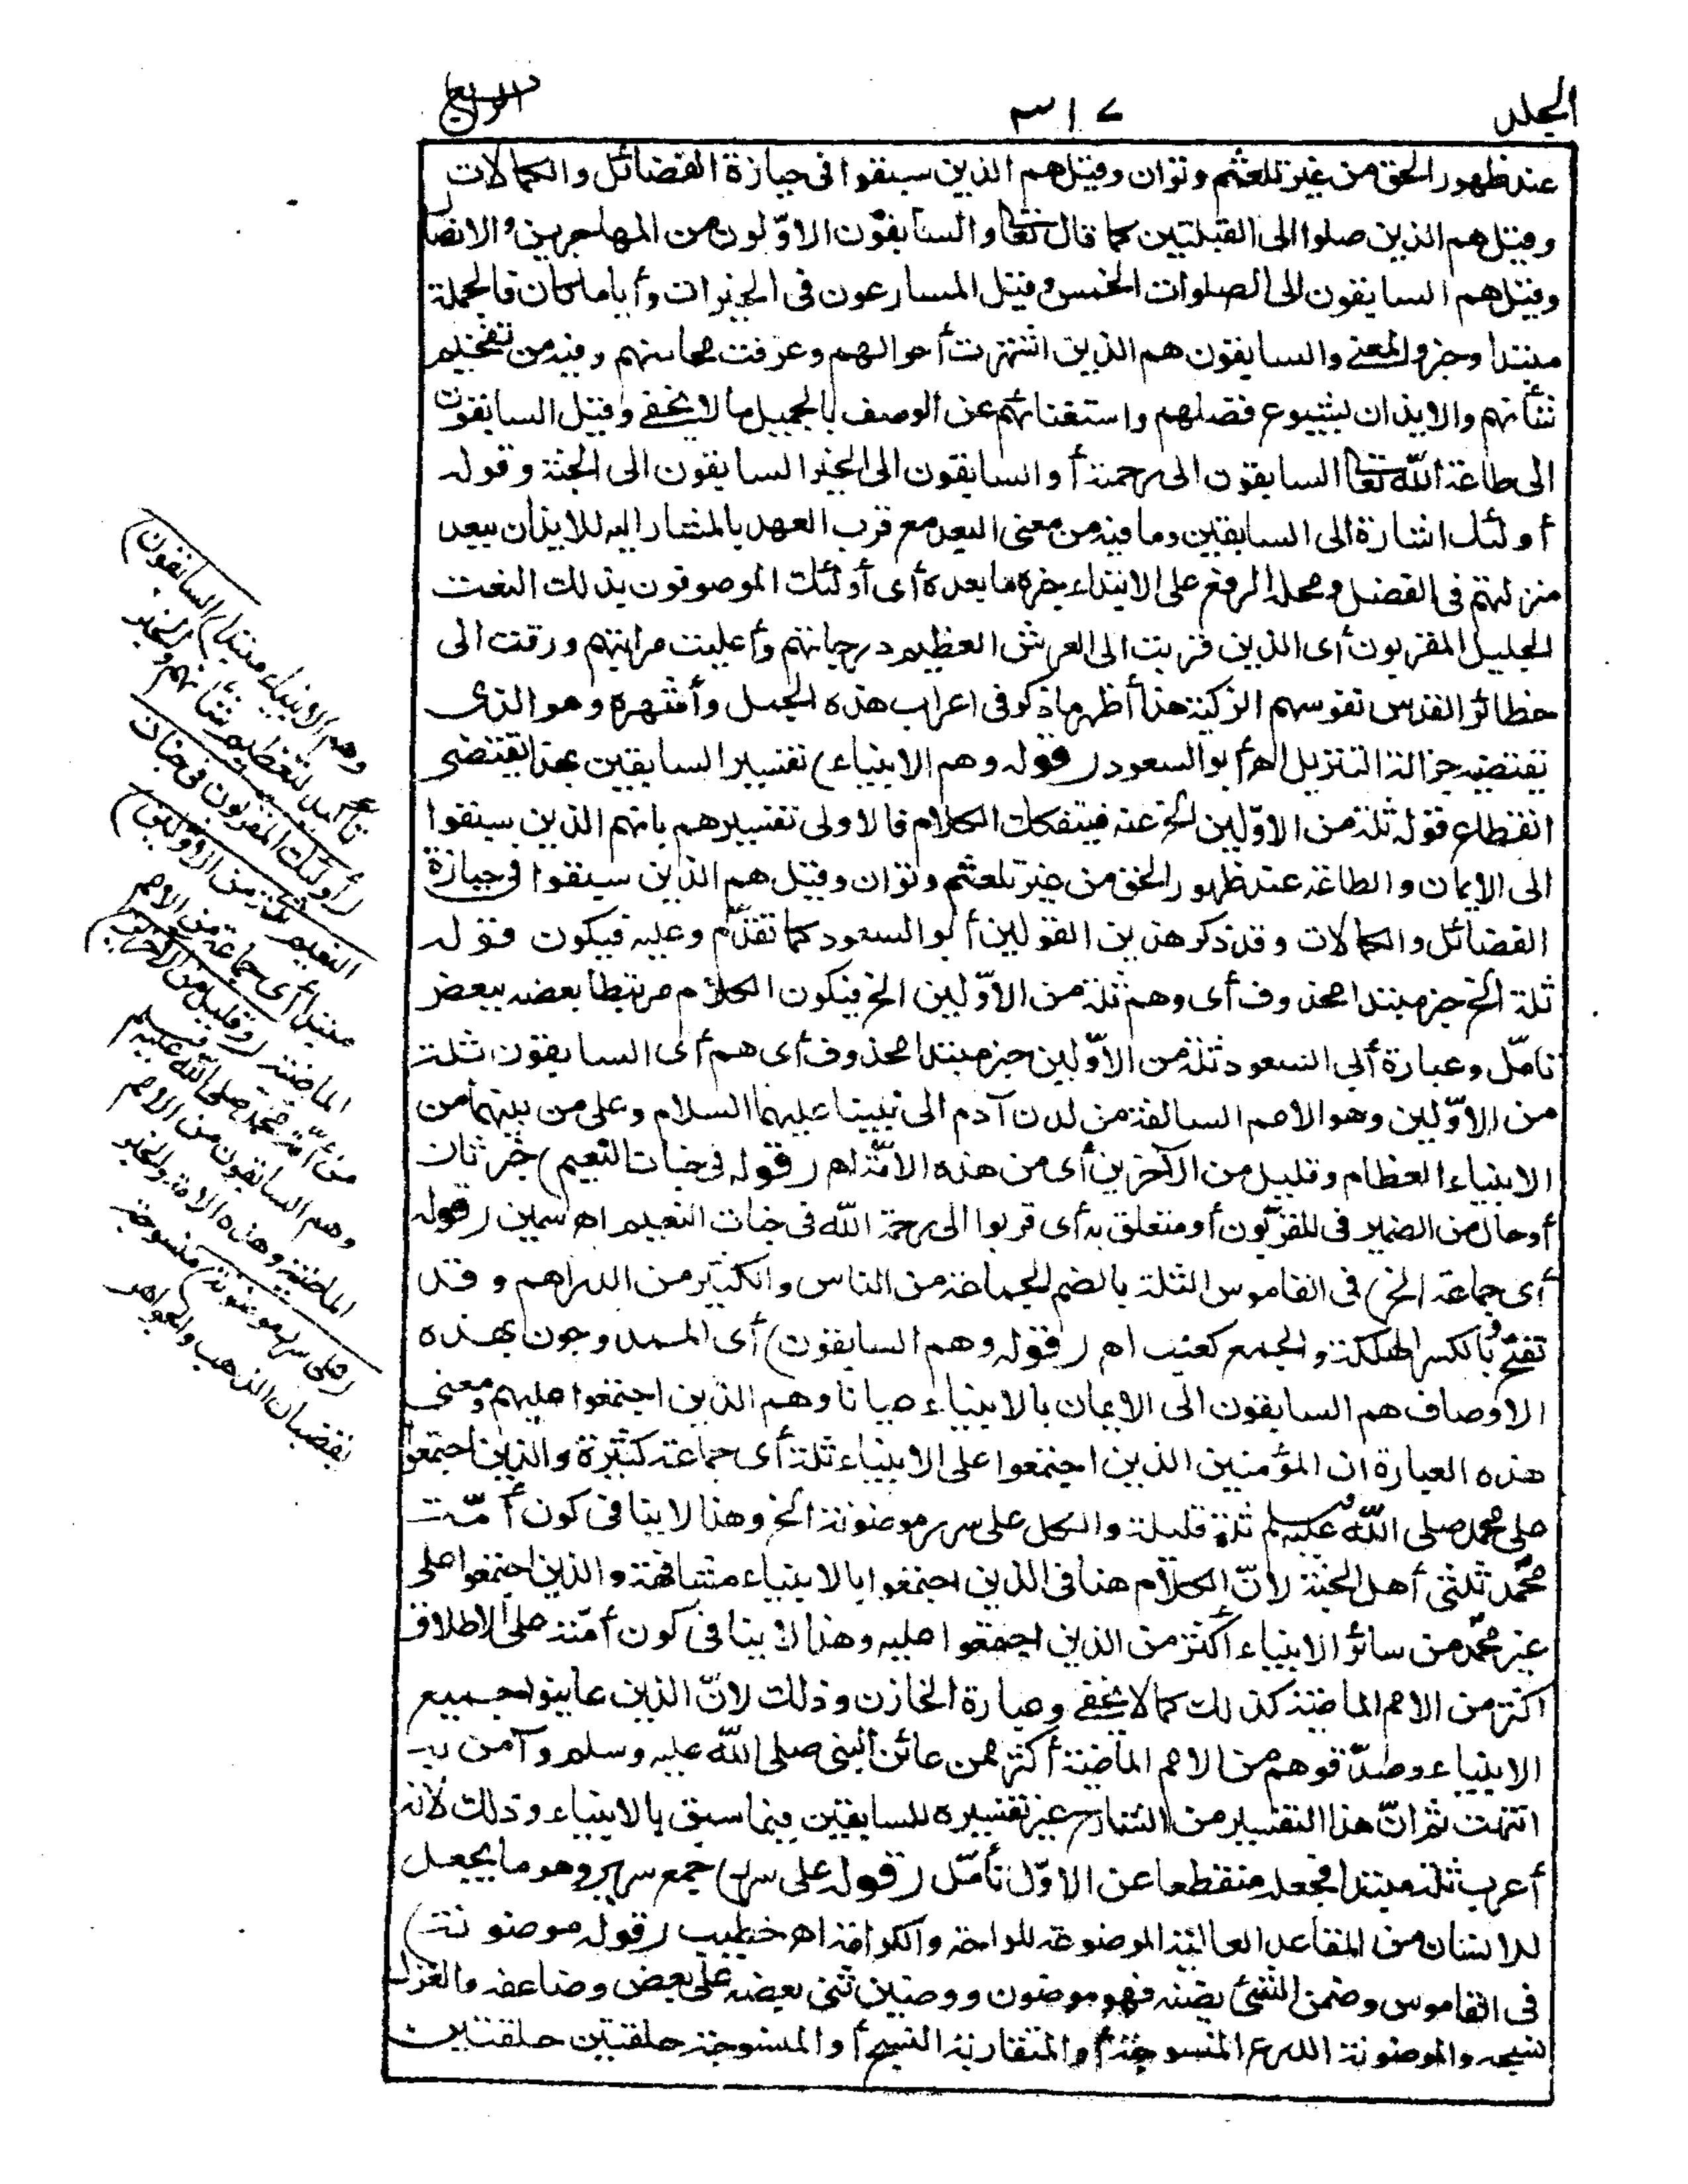 المجلد
٣١٧
الرابع
عند ظهور الحق من غير تلعثم وتوان وقيل هم الذين سبقوا فى حيازة الفضائل والكمالات
وقيل هم الذين صلوا الى القبلتين كما قال تعالى والسابقون الاوّلون من المهاجرين والانصار
وقيل هم السابقون الى الصلوات الخمس وقيل المسارعون فى الخيرات وأياما كان فالجملة
مبتدا وخبر والمعنى والسابقون هم الذين اشتهرت أحوالهم وعرفت محاسنهم وفيه من تفخيم
شأنهم والايذان بشيوع فضلهم واستغنائهم عن الوصف بالجميل ما لا يخفى وقيل السابقون
الى طاعة اللّه تعالى السابقون الى رحمته أو السابقون الى الخير السابقون الى الجنة وقوله
أولئك اشارة الى السابقين وما فيه من معنى البعد مع قرب العهد بالمشار اليه للايذان ببعد
منزلتهم فى الفضل ومحله الرفع على الابتداء خبره ما بعده أى أولئك الموصوفون بذلك النعت
الجليل المقربون أى الذين قربت الى العرش العظيم درجاتهم وأعليت مراتبهم ورقت الى
حظائر القدس نفوسهم الزكية هذا أظهر ما ذكر فى اعراب هذه الجمل وأشهره وهو الذى
تقتضيه جزالة التنزيل اهـ أبو السعود (قوله وهم الانبياء) تفسير السابقين بهذا يقتضى
انقطاع قوله ثلة من الاوّلين الخ عنه فيتفكك الكلام فالاولى تفسيرهم بانهم الذين سبقوا
الى الايمان والطاعة عند ظهور الحق من غير تلعثم وتوان وقيل هم الذين سبقوا فى حيازة
الفضائل والكمالات وقد ذكر هذين القولين أبو السعود كما تقدّم وعليه فيكون قوله
ثلة الخ خبر مبتدا محذوف أى وهم ثلة من الاوّلين الخ فيكون الكلام مرتبطا بعضه ببعض
تامّل وعبارة أبى السعود ثلة من الاوّلين خبر مبتدا محذوف أى هم أى السابقون ثلة
من الاوّلين وهو الامم السالفة من لدن آدم الى نبينا عليهما السلام وعلى من بينهما من
الانبياء العظام وقليل من الآخرين أى من هذه الامّة اهـ (قوله فى جنات النعيم) خبر ثان
أو حال من الضمير فى المقرّبون أو متعلق به أى قربوا الى رحمة اللّه فى جنات النعيم اهـ سمين (قوله
أى جماعة الخ) فى القاموس الثلة بالضم الجماعة من الناس والكثير من الدراهم وقد
تفتح وبالكسر الهلكة والجمع كعنب اهـ (قوله وهم السابقون) أى الممدوحون بهذه
الاوصاف هم السابقون الى الايمان بالانبياء عيانا وهم الذين اجتمعوا عليهم ومعنى
هذه العبارة ان المؤمنين الذين اجتمعوا على الانبياء ثلة أى جماعة كثيرة والذين اجتمعوا
على محمد صلى اللّه عليه وسلم ثلة قليلة والكل على سرر موضونة الخ وهذا لا ينافى كون أمّة
محمّد ثلثى أهل الجنة لانّ الكلام هنا فى الذين اجتمعوا بالانبياء مشافهة والذين اجتمعوا على
غير محمّد من سائر الانبياء أكثر من الذين اجتمعوا عليه وهذا لا ينافى كون أمّته على الاطلاق
اكثر من الامم الماضية كذلك كما لا يخفى وعبارة الخازن وذلك لانّ الذين عاينوا جميع
الانبياء وصدّقوهم من الامم الماضية أكثر ممن عاين النبى صلى اللّه عليه وسلم وآمن به
انتهت ثم انّ هذا التفسير من الشارح غير تفسيره للسابقين فيما سبق بالانبياء وذلك لانه
أعرب ثلة مبتدا فجعله منقطعا عن الاوّل تأمّل (قوله على سرر) جمع سرير وهو ما يجعل
للانسان من المقاعد العالية الموضوعة للراحة والكرامة اهـ خطيب (قوله موضونة)
فى القاموس وضن الشئ يضنه فهو موضون ووضين ثنى بعضه على بعض وضاعفه والغزل
نسجه والموضونة الدرع المنسوجة أو المتقاربة النسج أو المنسوجة حلقتين حلقتين
وهم الانبياء مبتدا (السابقون)
تأكيد لتعظيم شأنهم والخبر
(أولئك المقربون فى جنات
النعيم ثلة من الاوّلين)
مبتدا أى جماعة من الامم
الماضية (وقليل من الآخرين)
من أمّة محمد صلى اللّه عليه وسلم
وهم السابقون من الامم
الماضية وهذه الامة والخبر
(على سرر موضونة) منسوجة
بقضبان الذهب والجواهر